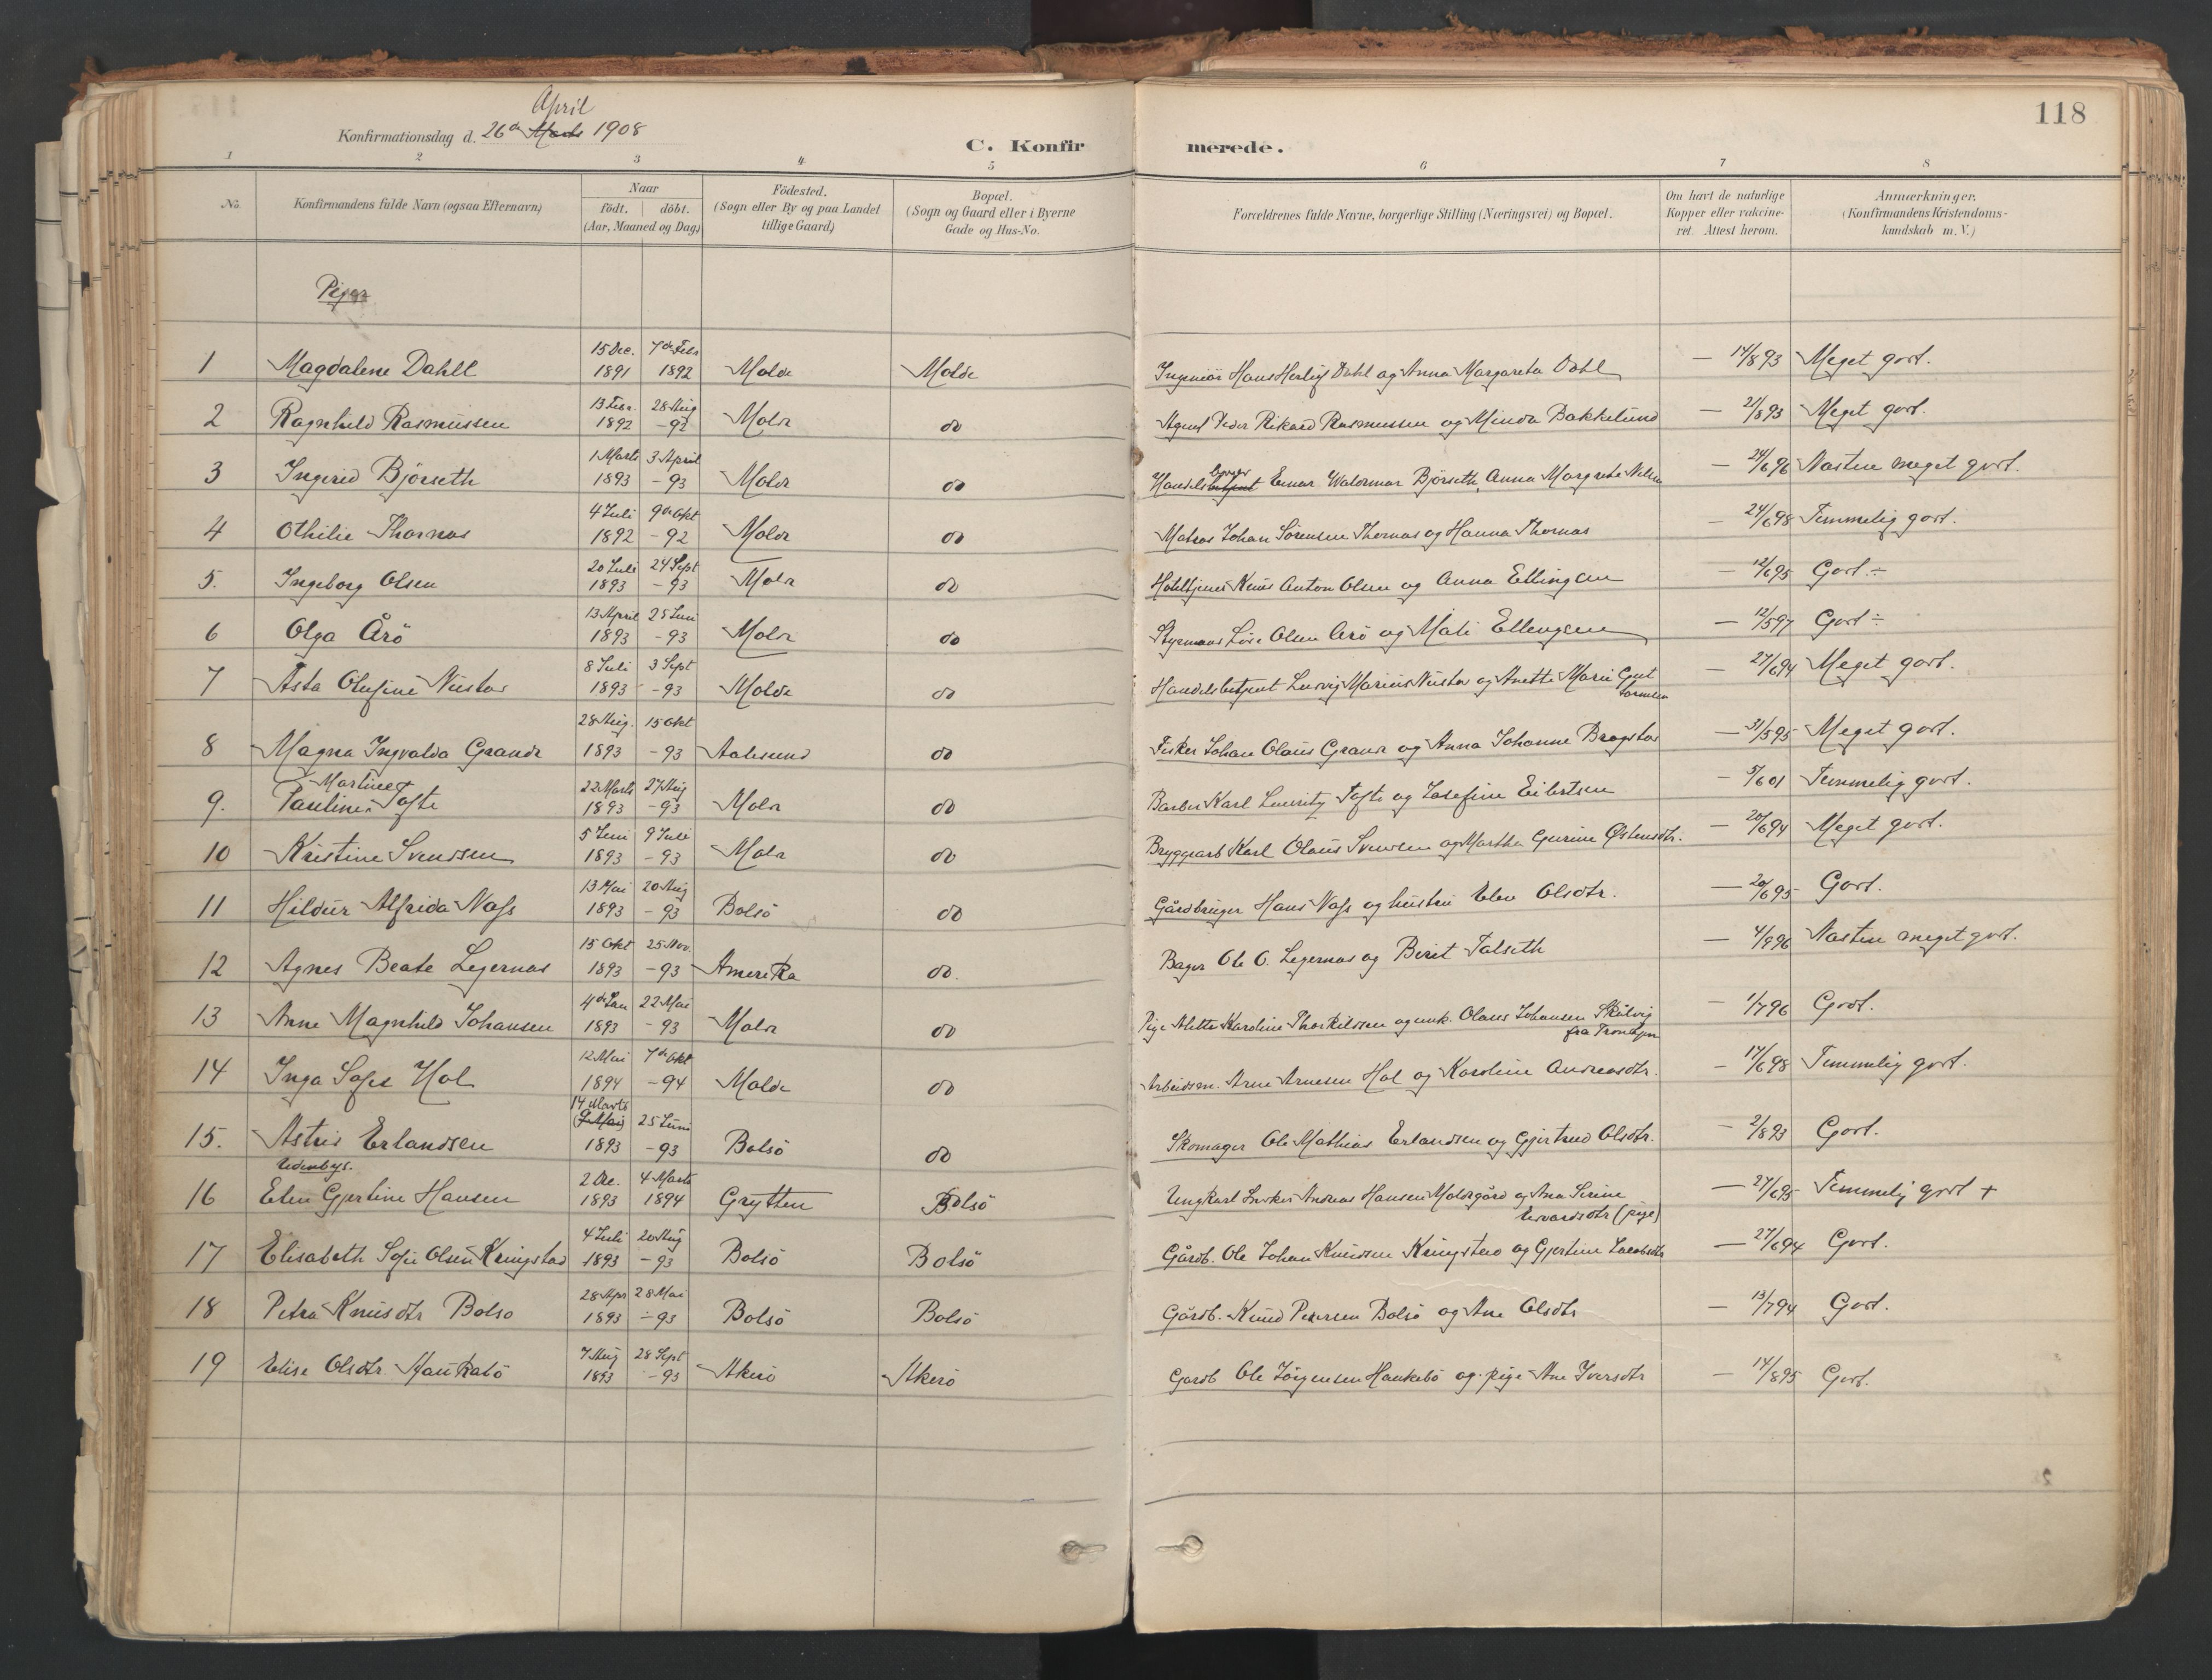 118
April
Konfirmationsdag d. 26de Marts 1908
C. Konfirmerede.
1 2 3 4 5 6 7 8
No. Konfirmandens fulde Navn (ogsaa Efternavn) Naar födt. döbt. (Aar, Maaned og Dag) Födested. (Sogn eller By og paa Landet tillige Gaard) Bopæl. (Sogn og Gaard eller i Byerne Gade og Hus-No. Forældrenes fulde Navne, borgerlige Stilling (Næringsvei) og Bopæl. Om havt de naturlige Kopper eller vakcineret. Attest herom. Anmærkninger. (Konfirmandens Kristendomskundskab m. V.)
Piger
1 Magdalene Dahll 15 Dec. 1891 7de Febr 1892 Molde Molde Ingeniör Hans Herlef Dahl og Anna Margareta Dahl — 14/8 93 Meget godt.
2 Ragnhild Rasmussen 13 Febr. 1892 28 Aug -92 Molde do Agent Peder Rikard Rasmussen og Minda Bakkelund — 21/8 93 Meget godt.
3 Ingerid Björseth 1 Marts 1893 3 April -93 Molde do Handelsbetjent Einar Waldemar Björseth, Anna Margrete Nilsen — 24/6 96 Næsten meget godt.
4 Othilie Thornæs 4 Juli 1892 9de Okt -92 Molde do Matros Johan Sörensen Thornæs og Hanna Thornæs — 24/6 98 Temmelig godt.
5. Ingeborg Olsen 20 Juli 1893 24 Sept -93 Molde do Hoteltjener Knut Anton Olsen og Anna Ellingsen — 12/6 95 Godt ÷
6 Olga Årö 13 April 1893 25 Juni -93 Molde do Styrmand Olsen Årö og Mali Ellengsen — 12/5 97 Godt ÷
7 Asta Olufine Nustad 8 Juli 1893 3 Sept -93 Molde do Handelsbetjent Ludvig Marius Nustad og Anette Marie — 27/6 94 Meget godt.
8 Magna Ingvalda Grande 28 Aug. 1893 15 Okt -93 Aalesund do Fisker Johan Olaus Grande og Anna Johanne Bragstad — 31/5 95 Meget godt.
Martine
9. Pauline Tofte 22 Marts 1893 27 Aug -93 Molde do Barber Karl Lauritz Tofte og Josefine Eilertsen — 5/6 01 Temmelig godt.
10 Kristine Svendsen 5 Juni 1893 9 Juli -93 Molde do Bryggearb Karl Olaus Svendsen og Martha Gurine Østensdtr. — 20/6 94 Meget godt.
11 Hildur Alfrida Næss 13 Mai 1893 20 Aug -93 Bolsö do Gårdbruger Hans Næss og hustru Elen Olsdtr. — 20/6 95 Godt.
12 Agnes Beate Legernæs 15 Okt 1893 25 Nov. -93 Amerika do. Bager Ole O. Legernæs og Berit Talseth — 4/9 96 Næsten meget godt.
13 Anne Magnhild Johansen 4de Jan 1893 22 Mai -93 Molde do Pige Alette Karoline Thorkildsen og unk. Olaus Johansen Skålvig — 1/7 96 Godt.
fra Trondhjem
14 Inga Sofie Hol 12 Mai 1894 7de Okt -94 Molde do Arbeidsm. Arne Arnesen Hol og Karoline Andreasdtr. — 17/6 98 Temmelig godt.
15. Astrid Erlandsen 14 Marts (9 Mai) 1893 25 Juni -93 Bolsö do Skomager Ole Mathias Erlandsen og Gjertrud Olsdtr. — 2/8 93 Godt.
Udenbys.
16 Elen Gjertine Hansen 2 Dec. 1893 4 Marts 1894 Grytten Bolsö Ungkarl Andreas Hansen Moldegård og Ane Serine — 27/6 95 Temmelig godt +
Edvardsdtr (pige)
17 Elisabeth Sofie Olsen Kringstad 4 Juli 1893 20 Aug -93 Bolsö Bolsö Gårdb. Ole Johan Knudsen Kringstad og Gjertine Jacobsdtr — 27/6 94 Godt.
18 Petra Knudsdtr Bolsö 28 Apr 1893 28 Mai -93 Bolsö Bolsö Gårdb. Knud Petersen Bolsö og Ane Olsdtr — 13/7 94 Godt.
19 Elise Olsdtr. Haukabö 7 Aug 1893 28 Sept -93 Akerö Akerö Gårdb Ole Jörgensen Haukebö og pige Ane Iversdtr — 14/8 95 Godt.